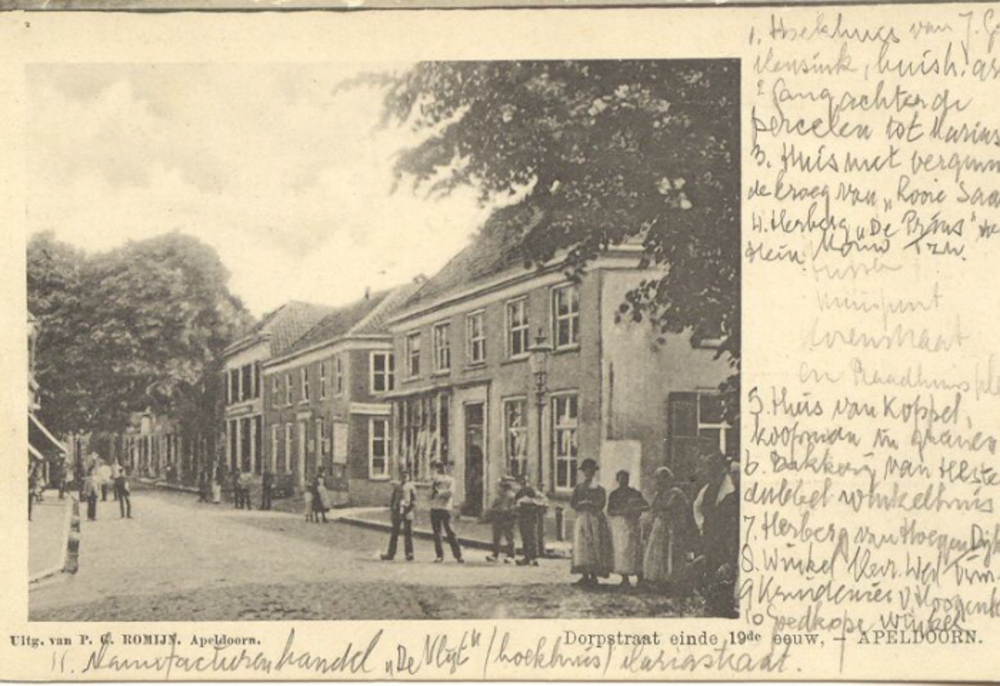 1. Hoekhuis van J. G
Mensink, huish. ar
2 Gang achter de
percelen tot Marias
3. Huis met vergunn
de kroeg van „Rooie Saa
4. Herberg „De Prins"
Hein Mouw Tzn.
tusschen
muurpunt
Korenstraat
en Raadhuispl
5. Huis van Koppel,
koopman in granen
6. Bakkerij van
dubbel winkelhuis
7. Herberg van Hoegen Dijk
8. Winkel Wed.
9 Kruidenier v. Hoogen
10 Goedkope Winkel
Uitg. van P. G. ROMIJN. Apeldoorn.
Dorpstraat einde 19de eeuw, – APELDOORN.
11. Manufacturenhandel „De Vlijt" (hoekhuis) Mariastraat.